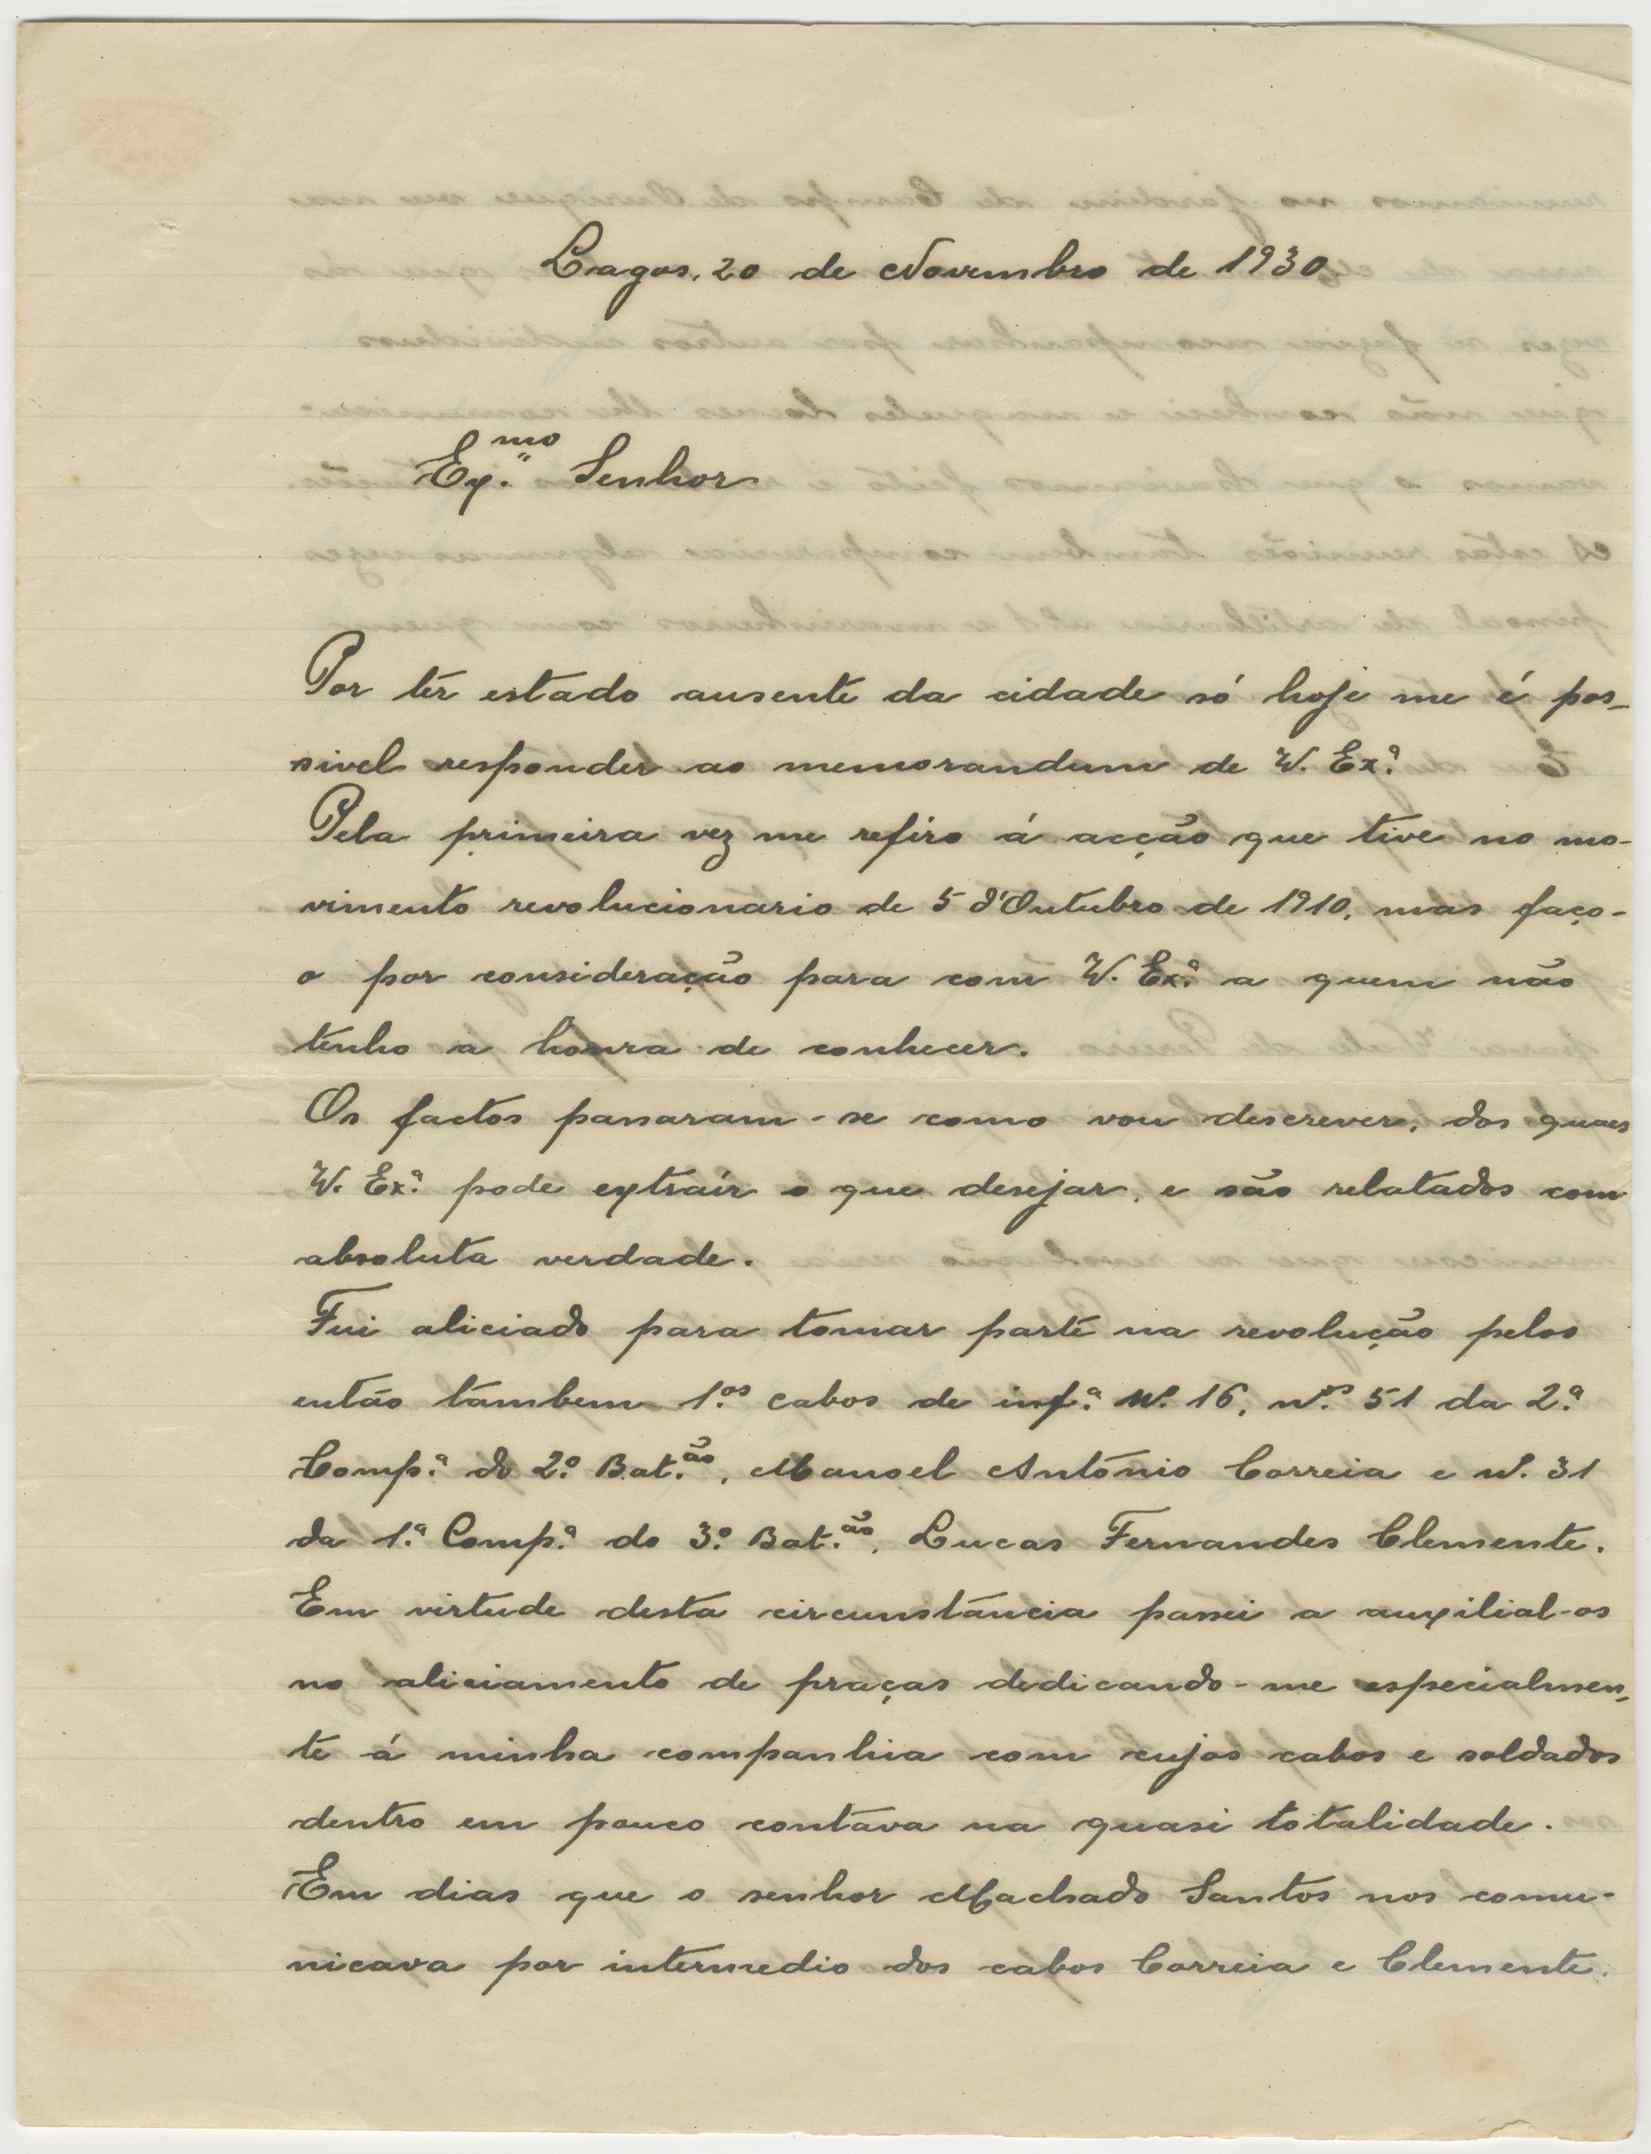 Lagos, 20 de Novembro de 1930.
Ex.mo Senhor
Por têr estado ausente da cidade só hoje me é pos-
sivel responder ao memorandum de V. Ex.ª
Pela primeira vez me refiro á acção que tive no mo-
vimento revolucionario de 5 d'Outubro de 1910, mas faço-
o por consideração para com V. Ex.ª a quem não
tenho a honra de conhecer.
Os factos passaram-se como vou descrever, dos quaes
V. Ex.ª pode extraír o que desejar, e são relatados com
absoluta verdade.
Fui aliciado para tomar parte na revolução pelos
então tambem 1.os cabos de inf.ª N.º 16, n.os 51 da 2.ª
Comp.ª do 2.º Bat.ão, Manoel António Correia e n.º 31
da 1.ª Comp.ª do 3.º Bat.ão, Lucas Fernandes Clemente.
Em virtude desta circunstância passei a auxilial-os
no aliciamento de praças dedicando-me especialmen-
te á minha companhia com cujos cabos e soldados
dentro em pouco contava na quasi totalidade.
Em dias que o senhor Machado Santos nos comu-
nicava por intermedio dos cabos Correia e Clemente,